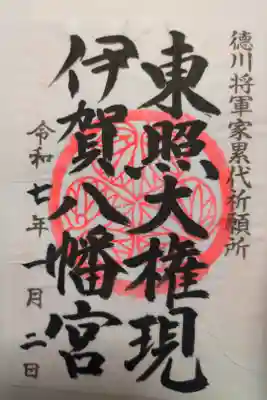 徳川将軍家累代祈願所
東照大権現
伊賀八幡宮
令和七年十月二日